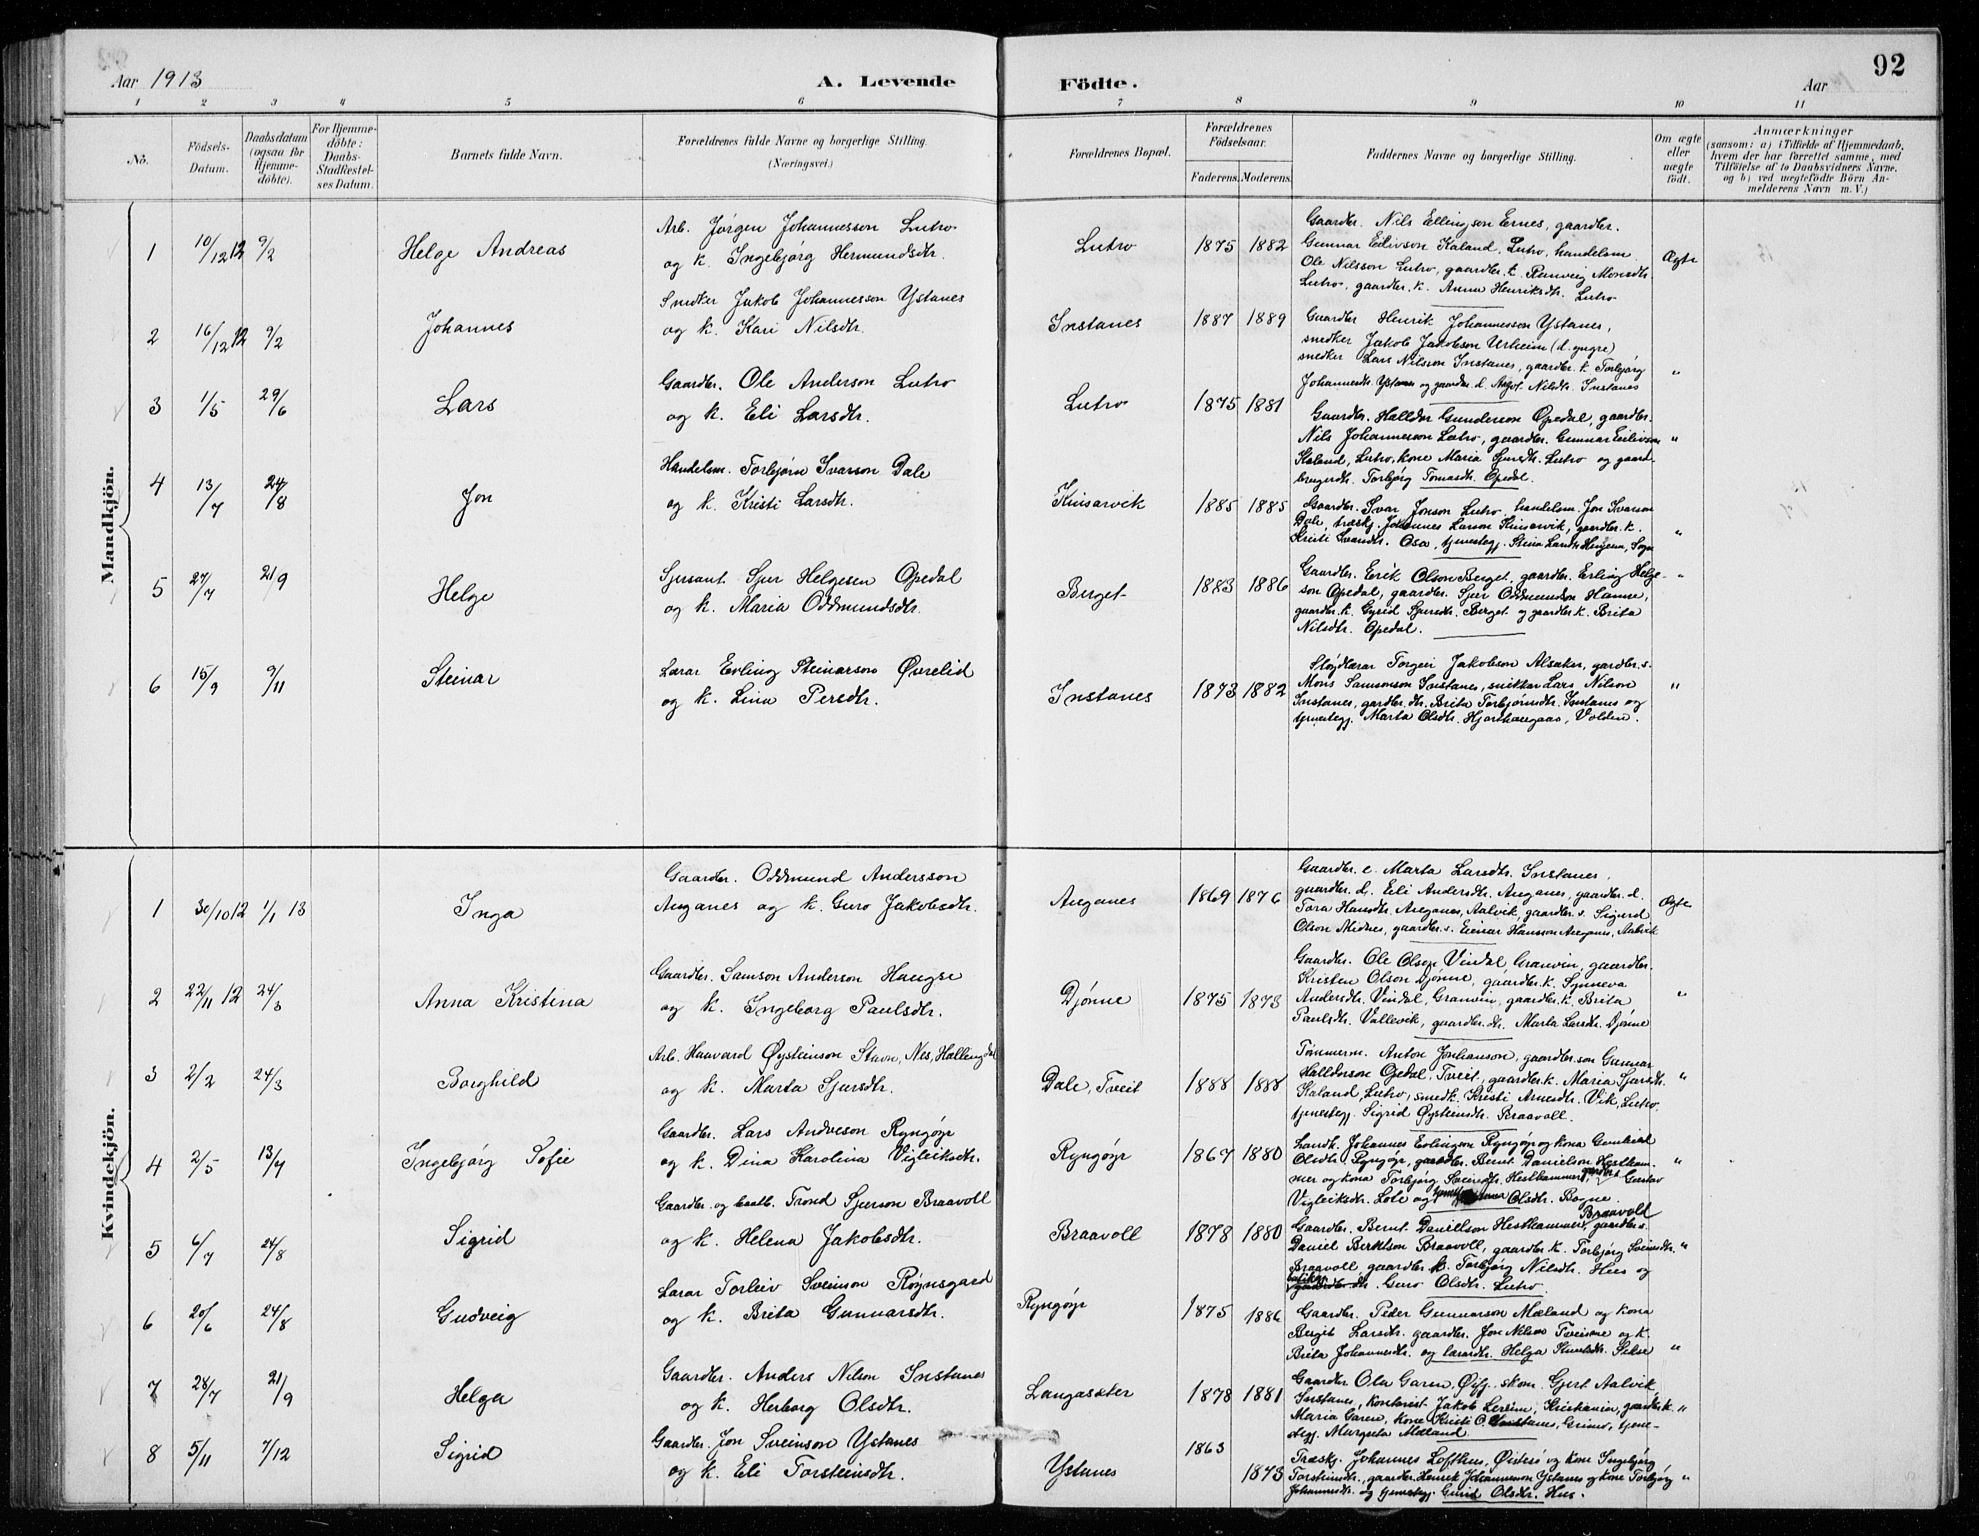 92
Aar 1913 A. Levende Födte. Aar
1 2 3 4 5 6 7 8 9 10 11
No.
Födsels-Datum.
Daabsdatum (ogsaa for Hjemme-döbte).
For Hjemme-döbte: Daabs-Stadfæstel-ses Datum.
Barnets fulde Navn.
Forældrenes fulde Navne og borgerlige Stilling. (Næringsvei.)
Forældrenes Bopæl.
Forældrenes Födselsaar.
Faderens. Moderens.
Faddernes Navne og borgerlige Stilling.
Om ægte eller uægte födt.
Anmærkninger
(saasom: a) i Tilfælde af Hjemmedaab,
hvem der har forrettet samme, med
Tilföielse af to Daabsvidners Navne.
og b) ved uægtefödte Börn An-
melderens Navn m. V.)
Mandkjön.
1 10/12 12 9/2 Helge Andreas
Arb. Jørgen Johannesson Lutro
og k. Ingebjørg Hermundsdtr.
Lutro 1875 1882
Gaardbr. Nils Ellingson Ernes, gaardbr.
Gunnar Eilivson Kaland, Lutro, handelsm.
Ole Nilsson Lutro, gaardbr. k. Ranveig Monsdtr.
Lutro, gaardbr. k. Anna Henriksdtr. Lutro
Ægte
2 16/12 12 9/2 Johannes
Snedker Jakob Johannesson Ystanes
og k. Kari Nilsdtr.
Instanes 1887 1889
Gaardbr Henrik Johannesson Ystanes,
snedker Jakob Jakobson Urheim (d. yngre)
snedker Lars Nilson Instanes, gaardbr. k. Torbjørg
Johannesdtr. Ystanes og gaardbr. d. Nilsdtr. Instanes
"
3 1/5 29/6 Lars
Gaardbr. Ole Anderson Lutro
og k. Eli Larsdtr.
Lutro 1875 1881
Gaardbr. Halldor Gunderson Opedal, gaardbr.
Nils Johannesson Lutro, gaardbr. Gunnar Eilivson
Kaland, Lutro, kone Maria Sjursdtr. Lutro og gaard-
brugerdtr. Torbjørg Tomasdtr. Opedal.
"
4 13/7 24/8 Jon
Handelsm. Torbjørn Ivarson Dale
og k. Kristi Larsdtr.
Kinsarvik 1885 1885
Gaardbr. Ivar Jonson Lutro, handelsm. Jon Ivarson
Dale, træskj. Johannes Larson Kinsarvik, gaardbr. k.
Kristi Ivarsdtr. Osa, tjenestegj. Steina Larsdtr. Sogn
"
5 27/7 21/9 Helge
Sjersant. Sjur Helgesen Opedal
og k. Maria Oddmundsdtr.
Berget 1883 1886
Gaardbr. Erik Olson Berget, gaardbr. Erling Helge-
son Opedal, gaardbr. Sjur Oddmundson Hamre,
gaardbr. k. Gyrid Sjursdtr. Berget og gaardbr. k. Brita
Nilsdtr. Opedal.
"
6 15/9 9/11 Steinar
Lærar Erling Steinarson Øvrelid
og k. Lina Persdtr.
Instanes 1873 1882
Sløjdlærar Torgeir Jakobson Alsaker, gardbr. s.
Mons Samsonson Instanes, snikkar Lars Nilson
Instanes, gardbr. dtr. Brita Torbjørnsdtr. Instanes og
tjenestegj. Marta Olsdtr. Hjorthaugaas, Volden.
"
Kvindekjön.
1 30/10 12 1/1 13 Inga
Gaardbr. Oddmund Andersson
Auganes og k. Guro Jakobsdtr.
Auganes 1869 1876
Gaardbr. e. Marta Larsdtr. Instanes,
gaardbr. d. Eli Andersdtr. Auganes, gaardbr. d.
Tora Hansdtr. Auganes, Aalvik, gaardbr. s. Sigurd
Olson Midnes, gaardbr. s. Einar Hansson Auganes, Aalvik
Ægte
2 22/11 12 24/3 Anna Kristina
Gaardbr. Samson Anderson Haugse
og k. Ingeborg Paulsdtr.
Djønne 1875 1873
Gaardbr. Ole Olson Vindal, Granvin, gaardbr.
Kristen Olson Djønne, gaardbr. k. Synneva
Andersdtr. Vindal, Granvin, gaardbr. k. Brita
Paulsdtr. Vallevik, gaardbr. dtr. Marta Larsdtr. Djønne
"
3 2/2 24/3 Borghild
Arb. Haavard Øysteinson Stavn, Nes, Hallingdal
og k. Marta Sjursdtr.
Dale, Tveit 1888 1888
Tømmerm. Anton Johanson, gaardbr. son Gunnar
Halldorson Opedal, Tveit, gaardbr. k. Maria Sjursdtr.
Kaland, Lutro, smedk. Kristi Arnesdtr. Vik, Lutro,
tjenestegj. Sigrid Øysteinsdtr. Braavoll.
"
4 2/5 13/7 Ingebjørg Sofie
Gaardbr. Lars Andreson Ryngøyr
og k. Dina Karolina Vigleiksdtr.
Ryngøyr 1867 1880
Landh. Johannes Erlingson Ryngøyr og kona
Olsdtr. Ryngøyr, gaardbr. Bernt Danielson Hestham-
mer og kona Torbjørg Sveinsdtr. Hesthammer, Gustav
Vigleiksdtr. Lote og Olsdtr. Bagne.
"
5 6/7 24/8 Sigrid
Gaardbr. og baatb. Trond Sjurson Braavoll
og k. Helena Jakobsdtr.
Braavoll 1878 1880
Gaardbr. Bernt Danielson Hesthammer, Braavoll gaardbr. s.
Daniel Berntson Braavoll, gaardbr. k. Torbjørg Sveinsdtr.
Braavoll gaardbr. k. Torbjørg Nilsdtr. Hus og
Guro Olsdtr. Lutro.
"
6 20/6 24/8 Gudveig
Lærar Torleiv Sveinson Røynsgard
og k. Brita Gunnarsdtr.
Ryngøyr 1875 1886
Gaardbr. Peder Gunnarson Mæland og kona
Bergit Larsdtr. gaardbr. Jon Nilson Tveisme og k.
Brita Johannesdtr. og lærardtr. Helga Sekse
"
7 28/7 21/9 Helga
Gaardbr. Anders Nilson Instanes
og k. Herborg Olsdtr.
Langasæter 1878 1881
Gaardbr Ola Garen, Øifj. skom. Gjert Aalvik,
Instanes, kontorist Jakob Kristiania, gaardbr. k.
Maria Garen, kone Kristi O. Instanes, Grimo, tjene-
stegj. Margreta Mæland
"
8 5/11 7/12 Sigrid
Gaardbr. Jon Sveinson Ystanes
og k. Eli Torsteinsdtr.
Ystanes 1863 1873
Træskj. Johannes Lofthus, Øistesø og kone Ingebjørg
Torsteinsdtr., gaardbr. Henrik Johannesson Ystanes og kone Torbjørg
Johannesdtr. og tjenestegj. Gurid Olsdtr. Hus.
"